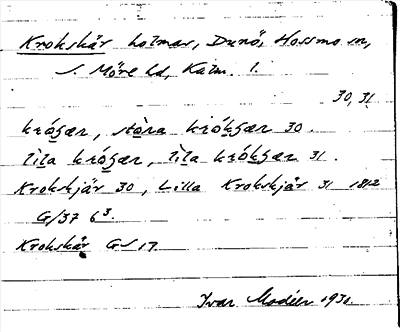 Krokskär holmar, Dunö, Hossmo sn,
S. Möre hd, Kalm. l.
30, 31
króʂær, stòra krókʂær 30.
lìla króʂær, lìla krókʂær 31.
Krokskjär 30, Lilla Krokskjär 31 1812
G/37 6³.
Krokskär GS 17.
Ivar Modéer 1931.